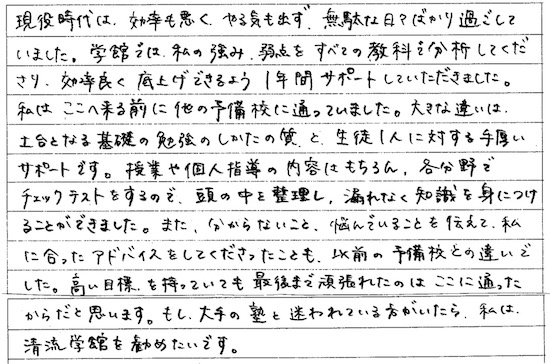 現役時代は、効率も悪く、やる気も出ず、無駄な日々ばかり過ごして
いました。学館では、私の強み、弱点をすべての教科で分析してくだ
さり、効率良く底上げできるよう1年間サポートしていただきました。
私はここへ来る前に他の予備校に通っていました。大きな違いは、
土台となる基礎の勉強のしかたの質と、生徒1人に対する手厚い
サポートです。授業や個人指導の内容はもちろん、各分野で
チェックテストをするので、頭の中を整理し、漏れなく知識を身につけ
ることができました。また、分からないこと、悩んでいることを伝えて、私
に合ったアドバイスをしてくださったことも、以前の予備校との違いで
した。高い目標を持っていても最後まで頑張れたのはここに通った
からだと思います。もし、大手の塾と迷われている方がいたら、私は、
清流学館を勧めたいです。